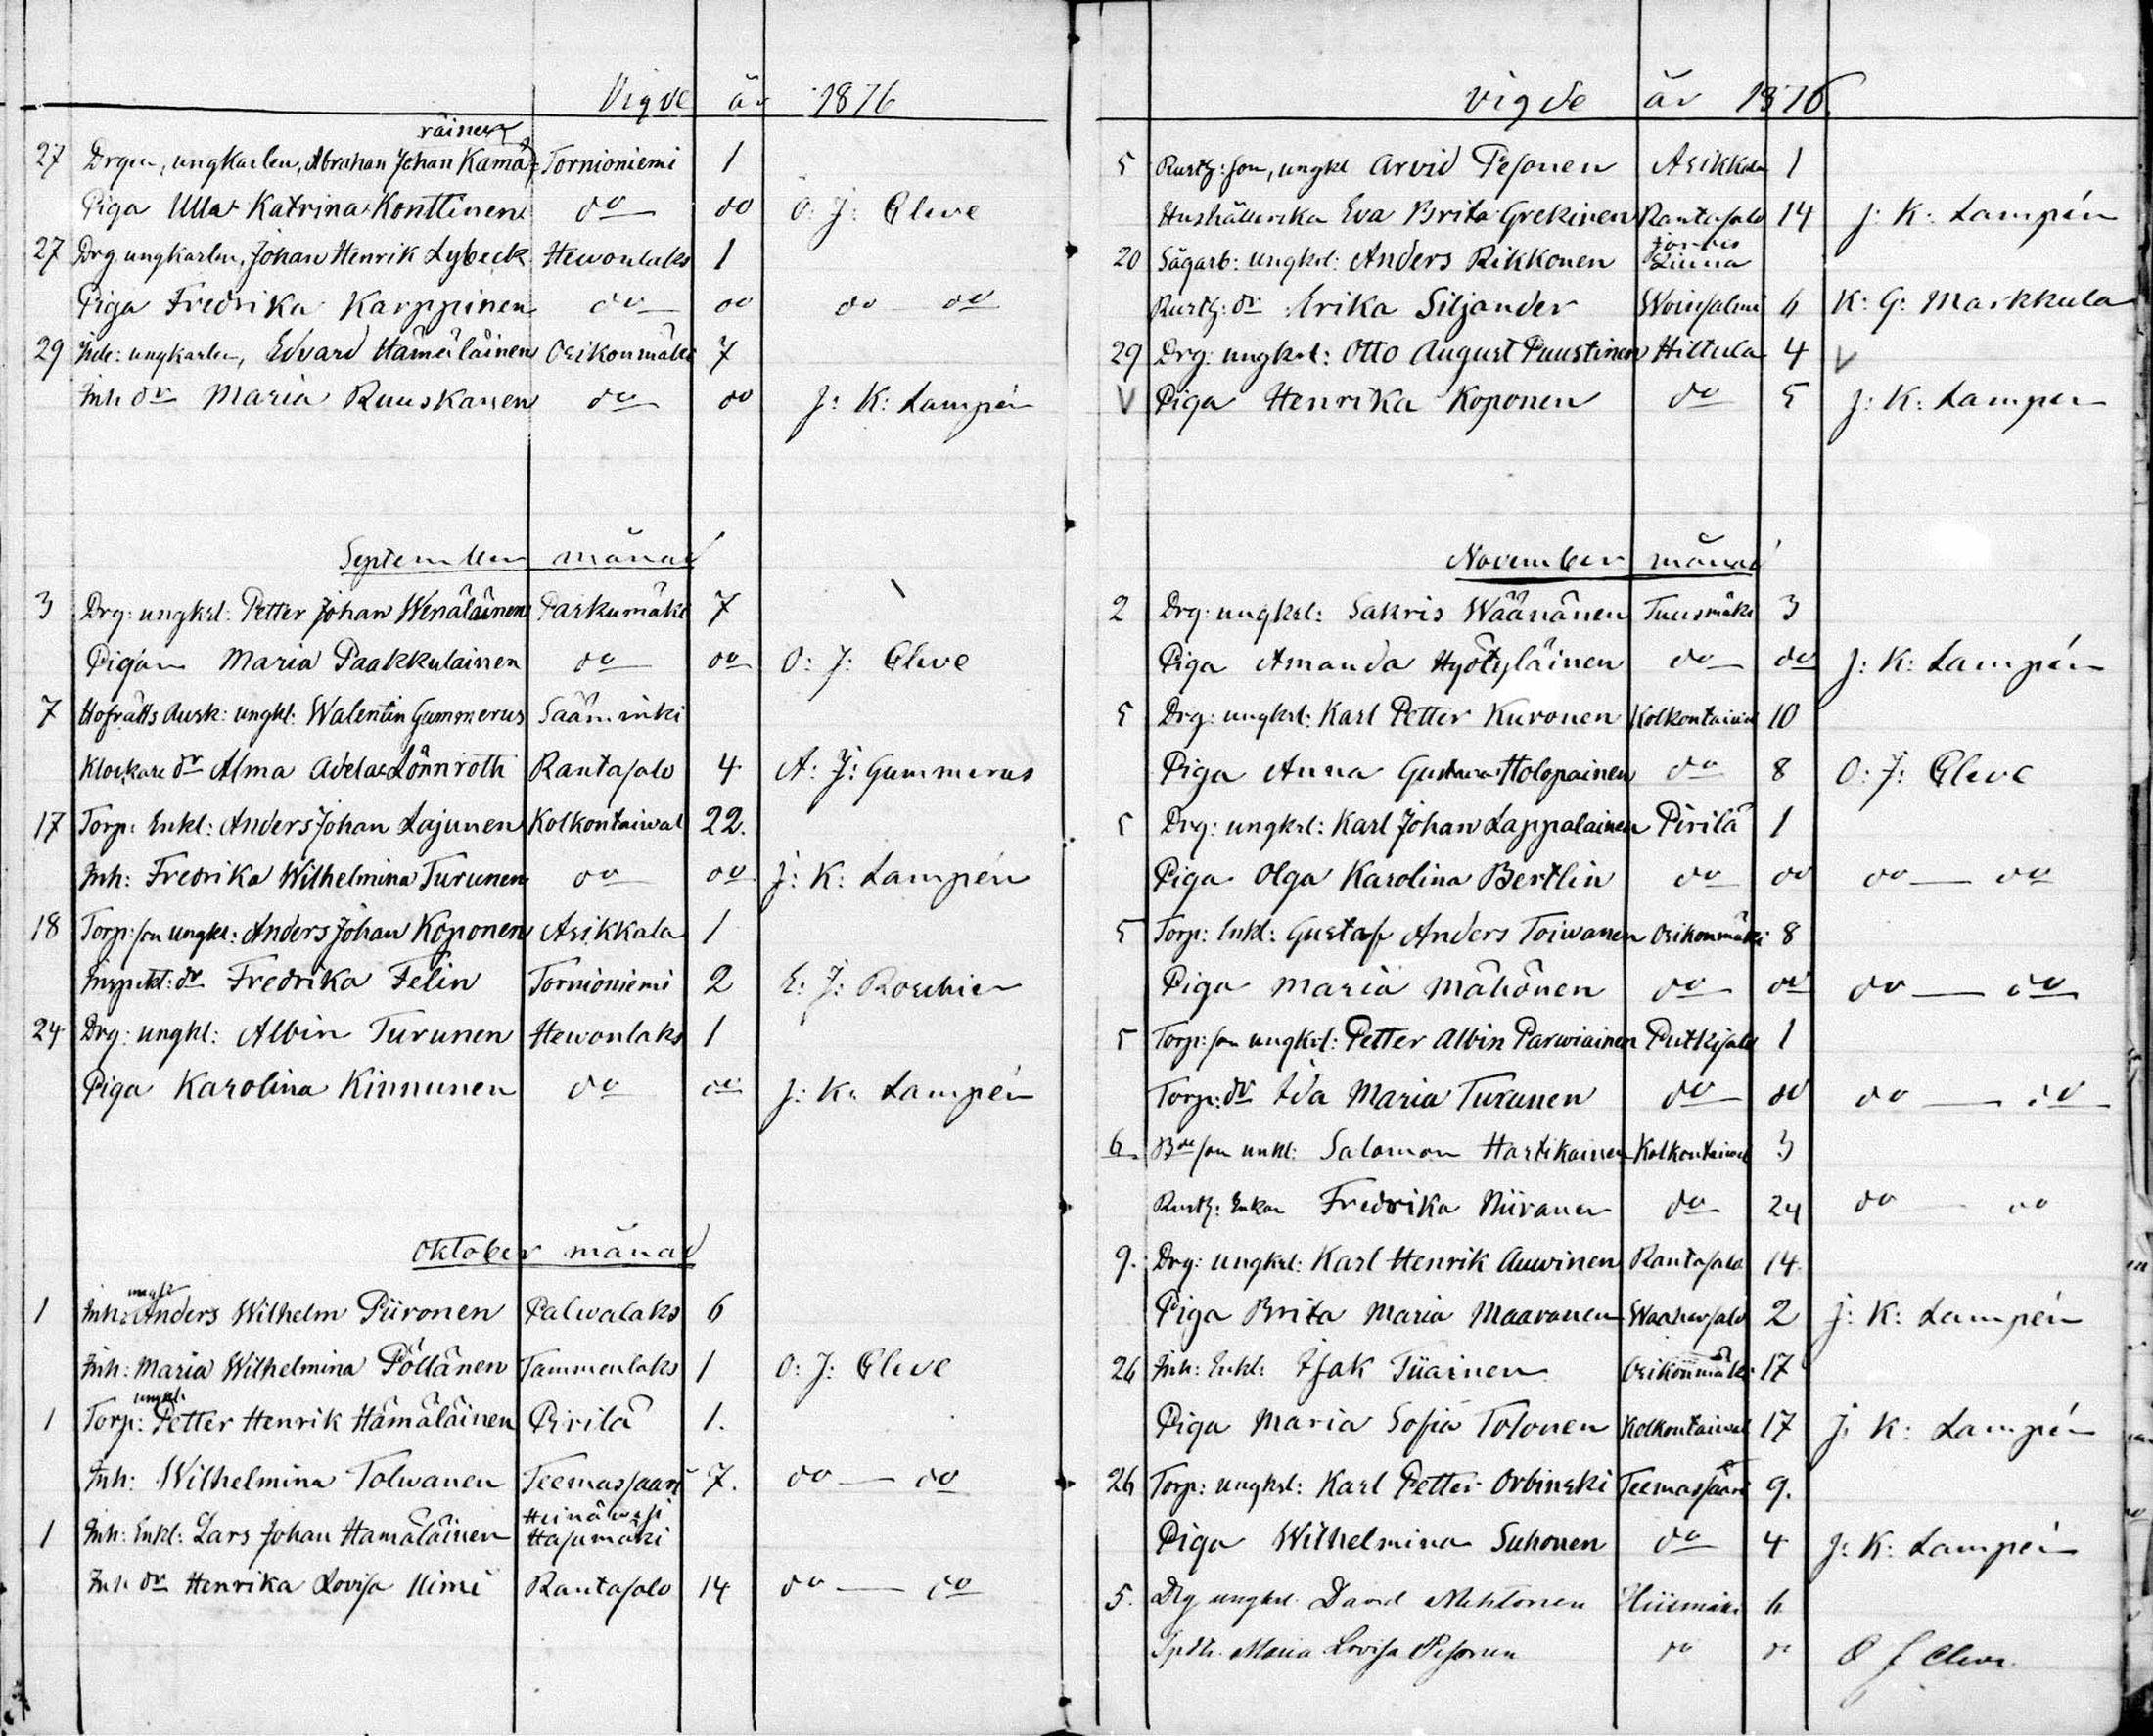 Vigde år 1876
räinen
27 Drgen, ungkarlen, Abraham Johan Kamä= Tornioniemi 1
Piga Ulla Katrina Konttinen do do O: J: Cleve
27 Drg ungkarlen, Johan Henrik Lybeck Hewonlaks 1
Piga Fredrika Karppinen do do do do
29 Inh: ungkarlen, Edvard Hämäläinen Osikonmäki 7
Inh dr Maria Ruuskanen do do J: K: Lampén
September månad
3 Drg: ungkrl: Petter Johan Wenäläinen Parkumäki 7
Pigan Maria Paakkulainen do do O: J: Cleve
7 Hofrätts Ausk: ungkl: Walentin Gummerus Sääminki
Klockare dr Alma Adela Lönnroth Rantasalo 4 A: J: Gummerus
17 Torp: Enkl: Anders Johan Lajunen Kolkontaiwal 22.
Inh: Fredrika Wilhelmina Turunen do do J: K: Lampén
18 Torp: son ungkl: Anders Johan Koponen Asikkala 1
Inspekt: dr Fredrika Felin Tornioniemi 2 E: J: Roschier
24 Drg: ungkl: Albin Turunen Hewonlaks 1
Piga Karolina Kinnunen do do J: K: Lampén
Oktober månad
ungkl
1 Inh: Anders Wilhelm Piironen Palwalaks 6
Inh: Maria Wilhelmina Pöllänen Tammenlaks 1 O: J: Cleve
ungkl.
1 Torp: Petter Henrik Hämäläinen Pirilä 1.
Inh: Wilhelmina Tolwanen Teemassaari 7. do do
Heinäwesi
1 Inh: Enkl: Lars Johan Hämäläinen Hasumäki
Inh dr Henrika Lovisa Nimi Rantasalo 14 do do
Vigde år 1876
5 Rustg: son, ungkl Arvid Pesonen Asikkala 1
Hushållerska Eva Brita Grekinen Rantasalo 14 J: K: Lampén
Jorois
20 Sågarb: ungkrl: Anders Rikkonen Linna
Rustg: dr Erika Siljander Woinsalmi 6 K: G: Markkula
29 Drg: ungkrl: Otto August Puustinen Hiltula 4 V
V Piga Henrika Koponen do 5 J: K: Lampen
November månad
2 Drg: ungkrl: Sakris Wäänänen Tuusmäki 3
Piga Amanda Hyötyläinen do do J: K: Lampén
5 Drg: ungkrl: Karl Petter Kuronen Kolkontaiwal 10
Piga Anna Gustava Holopainen do 8 O: J: Cleve
5 Drg: ungkrl: Karl Johan Lappalainen Pirilä 1
Piga Olga Karolina Bertlin do do do do
5 Torp: Enkl: Gustaf Anders Toiwanen Osikonmäki 8
Piga Maria Mähönen do do do do
5 Torp: son ungkrl: Petter Albin Parwiainen Putkisalo 1
Torp: dr Ida Maria Turunen do do do do
6. Bde son unkl: Salomon Hartikainen Kolkontaiwal 3
Rustg: Enkan Fredrika Niiranen do 24 do do
9. Drg: ungkrl: Karl Henrik Auwinen Rantasalo 14
Piga Brita Maria Maaranen Waahersalo 2 J: K: Lampén
26 Inh: Enkl: Isak Tiiainen Osikonmäki 17
Piga Maria Sofia Tolonen Kolkontaiwal 17 J: K: Lampén
26 Torp: ungkrl: Karl Petter Orbinski Teemassaari 9.
Piga Wilhelmina Suhonen do 4 J: K: Lampén
5. Drg ungkrl. David Mehtonen Hiismäki 6
Maria Lovisa Pesonen do do O J Cleve.